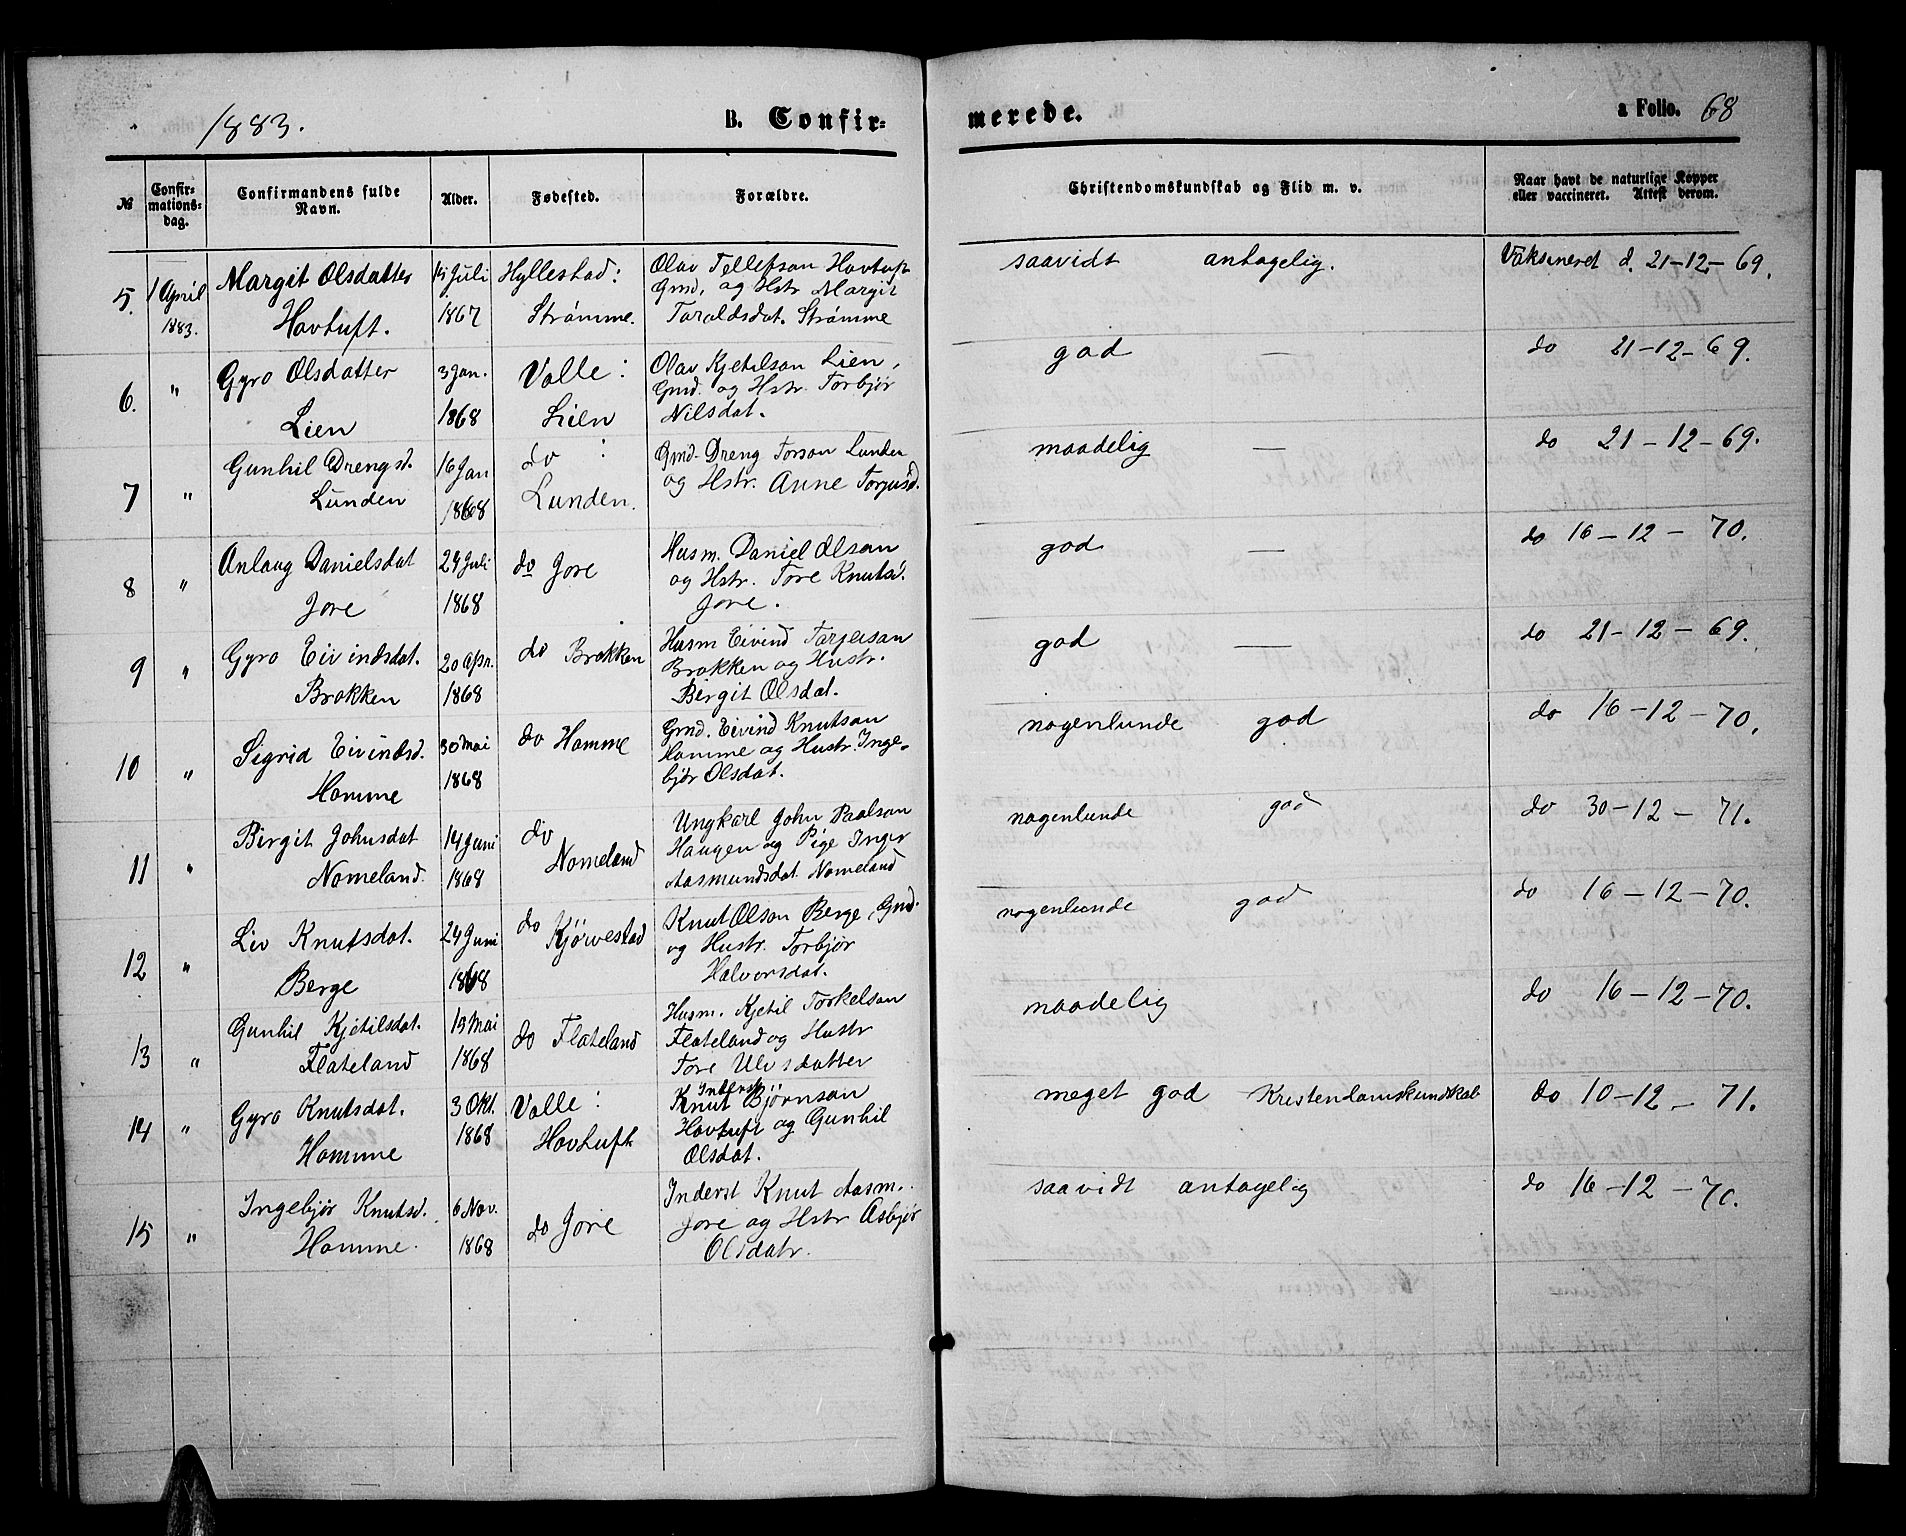 1883. B. Confir= merede. a Folio. 68
№ Confir=mations=dag. Confirmandens fulde Navn. Alder. Fødested. Forældre. Christendomskundskab og Flid m. v. Naar havt de naturlige Kopper eller vaccineret. Attest derom.
Margit Olsdatter 15 Juli Hyllestad: Olav Tellefson Hovtuft saavidt antagelig. Vaksineret d. 21-12-69.
5. 1 April Gmd, og Hstr Margit
1883. Hovtuft. 1867 Strømme. Taraldsdat. Strømme
Gyro Olsdatter 3 Jan. Valle: Olav Kjetilson Lien, god — do 21-12-69.
6. " Gmd. og Hstr. Torbjør
Lien 1868 Lien Nilsdat.
Gunhil Drengsd. 16 Jan do : Gmd. Dreng Torson Lunden maadelig — do 21-12-69.
7 " Lunden 1868 Lunden. og Hstr. Anne Torjusd.
Anlaug Danielsdat 24 Juli do Jore Husm. Daniel Olson god — do 16-12-70.
8 " og Hstr. Tore Knutsd.
Jore 1868 Jore.
Gyro Eivindsdat. 20 Apr. do Brokken Husm Eivind Tarjeison god — do 21-12-69.
9 " Brokken og Hustr.
Brokken 1868 Birgit Olsdat.
Sigrid Eivindsd. 30 Mai do Homme Gmd. Eivind Knutson nogenlunde god do 16-12-70.
10 " Homme og Hustr. Inge-
Homme 1868 bjør Olsdat.
Birgit Johnsdat 14 Juni do Ungkarl John Paalson nogenlunde god do 30-12-71.
11 " Nomeland Haugen og Pige Inger
Nomeland. 1868 Aasmundsdat. Nomeland
Liv Knutsdat. 24 Juni do Kjørvestad Knut Olson Berge, Gmd. nogenlunde god do 16-12-70.
12 " og Hustr. Torbjør
Berge 1868 Halvorsdat.
Gunhil Kjetilsdat. 15 Mai do Flateland Husm. Kjetil Torkelson maadelig do 16-12-70.
13 " Flateland og Hustr
Flateland 1868 Tore Ulvsdatter
Gyro Knutsdat. 3 Okt. Valle: Inderst Knut Bjørnson meget god Kristendomskundskab do 10-12-71.
14 " 1868 Hovtuft Hovtuft og Gunhil
Homme Olsdat.
Ingebjør Knutsd. 6 Nov. do Jore Inderst Knut Aasm. saavidt antagelig do 16-12-70.
15 " Jore og Hstr Asbjør
Homme. 1868 Olsdatr.